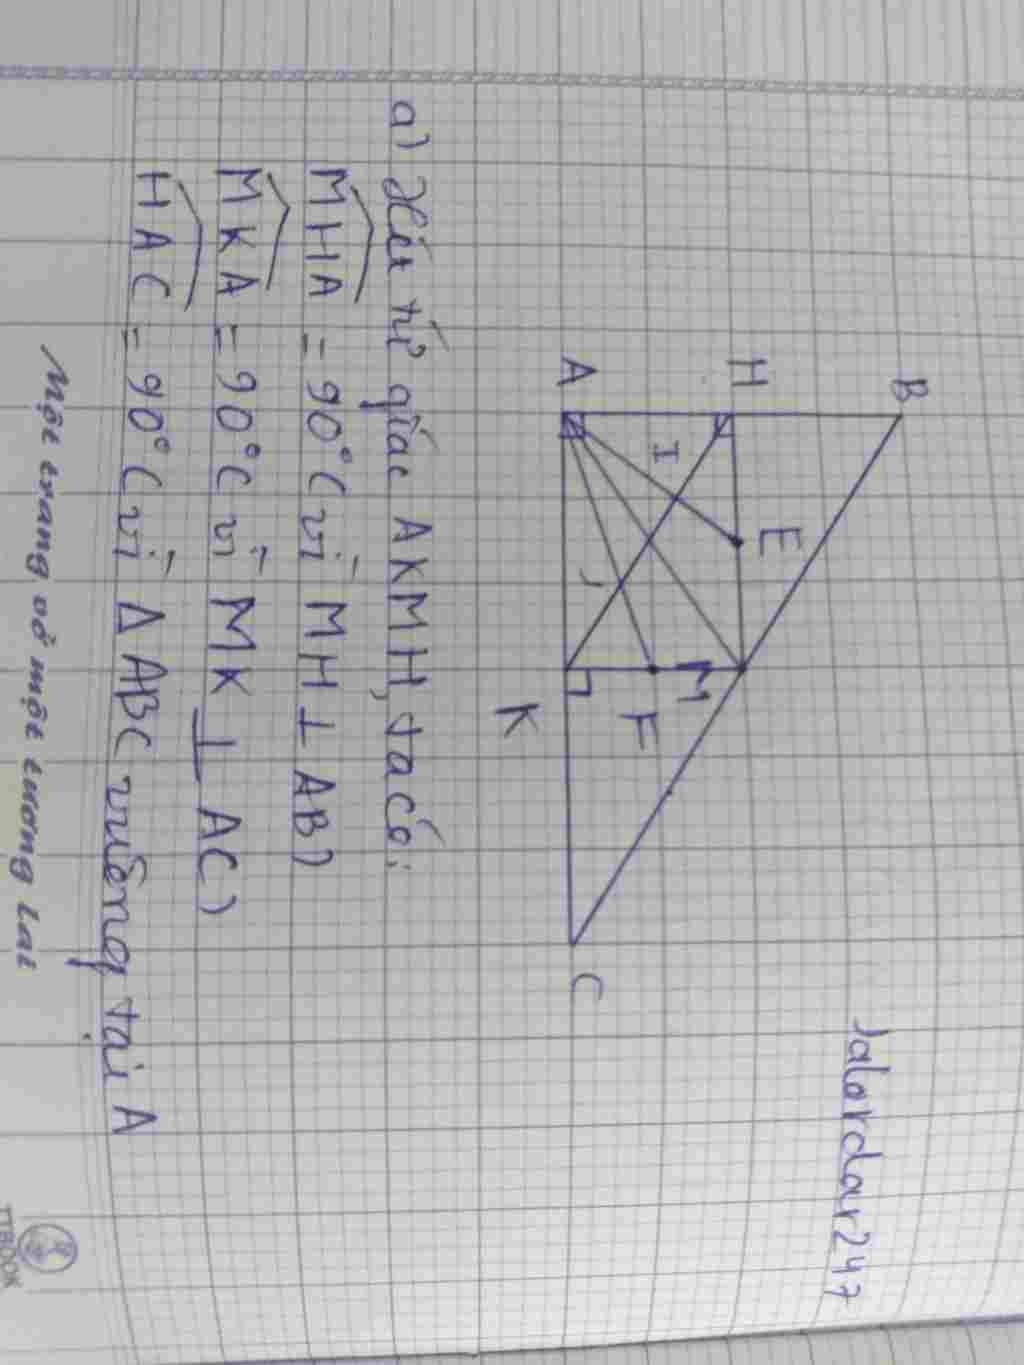 Jalordar247
B
H
E
I
A
M
F
K
C
a) Xét tứ giác AKMH, ta có:
MHA = 90° (vì MH ⊥ AB)
MKA = 90° (vì MK ⊥ AC)
HAC = 90° (vì Δ ABC vuông tại A
Một trang vở một tương lai
TTBOOK